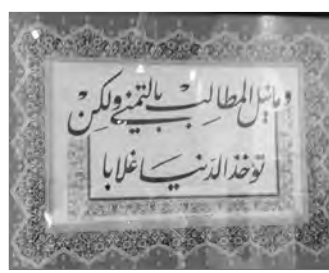 وما نيل المطالب بالتمني ولكن
تؤخذ الدنيا غلابا